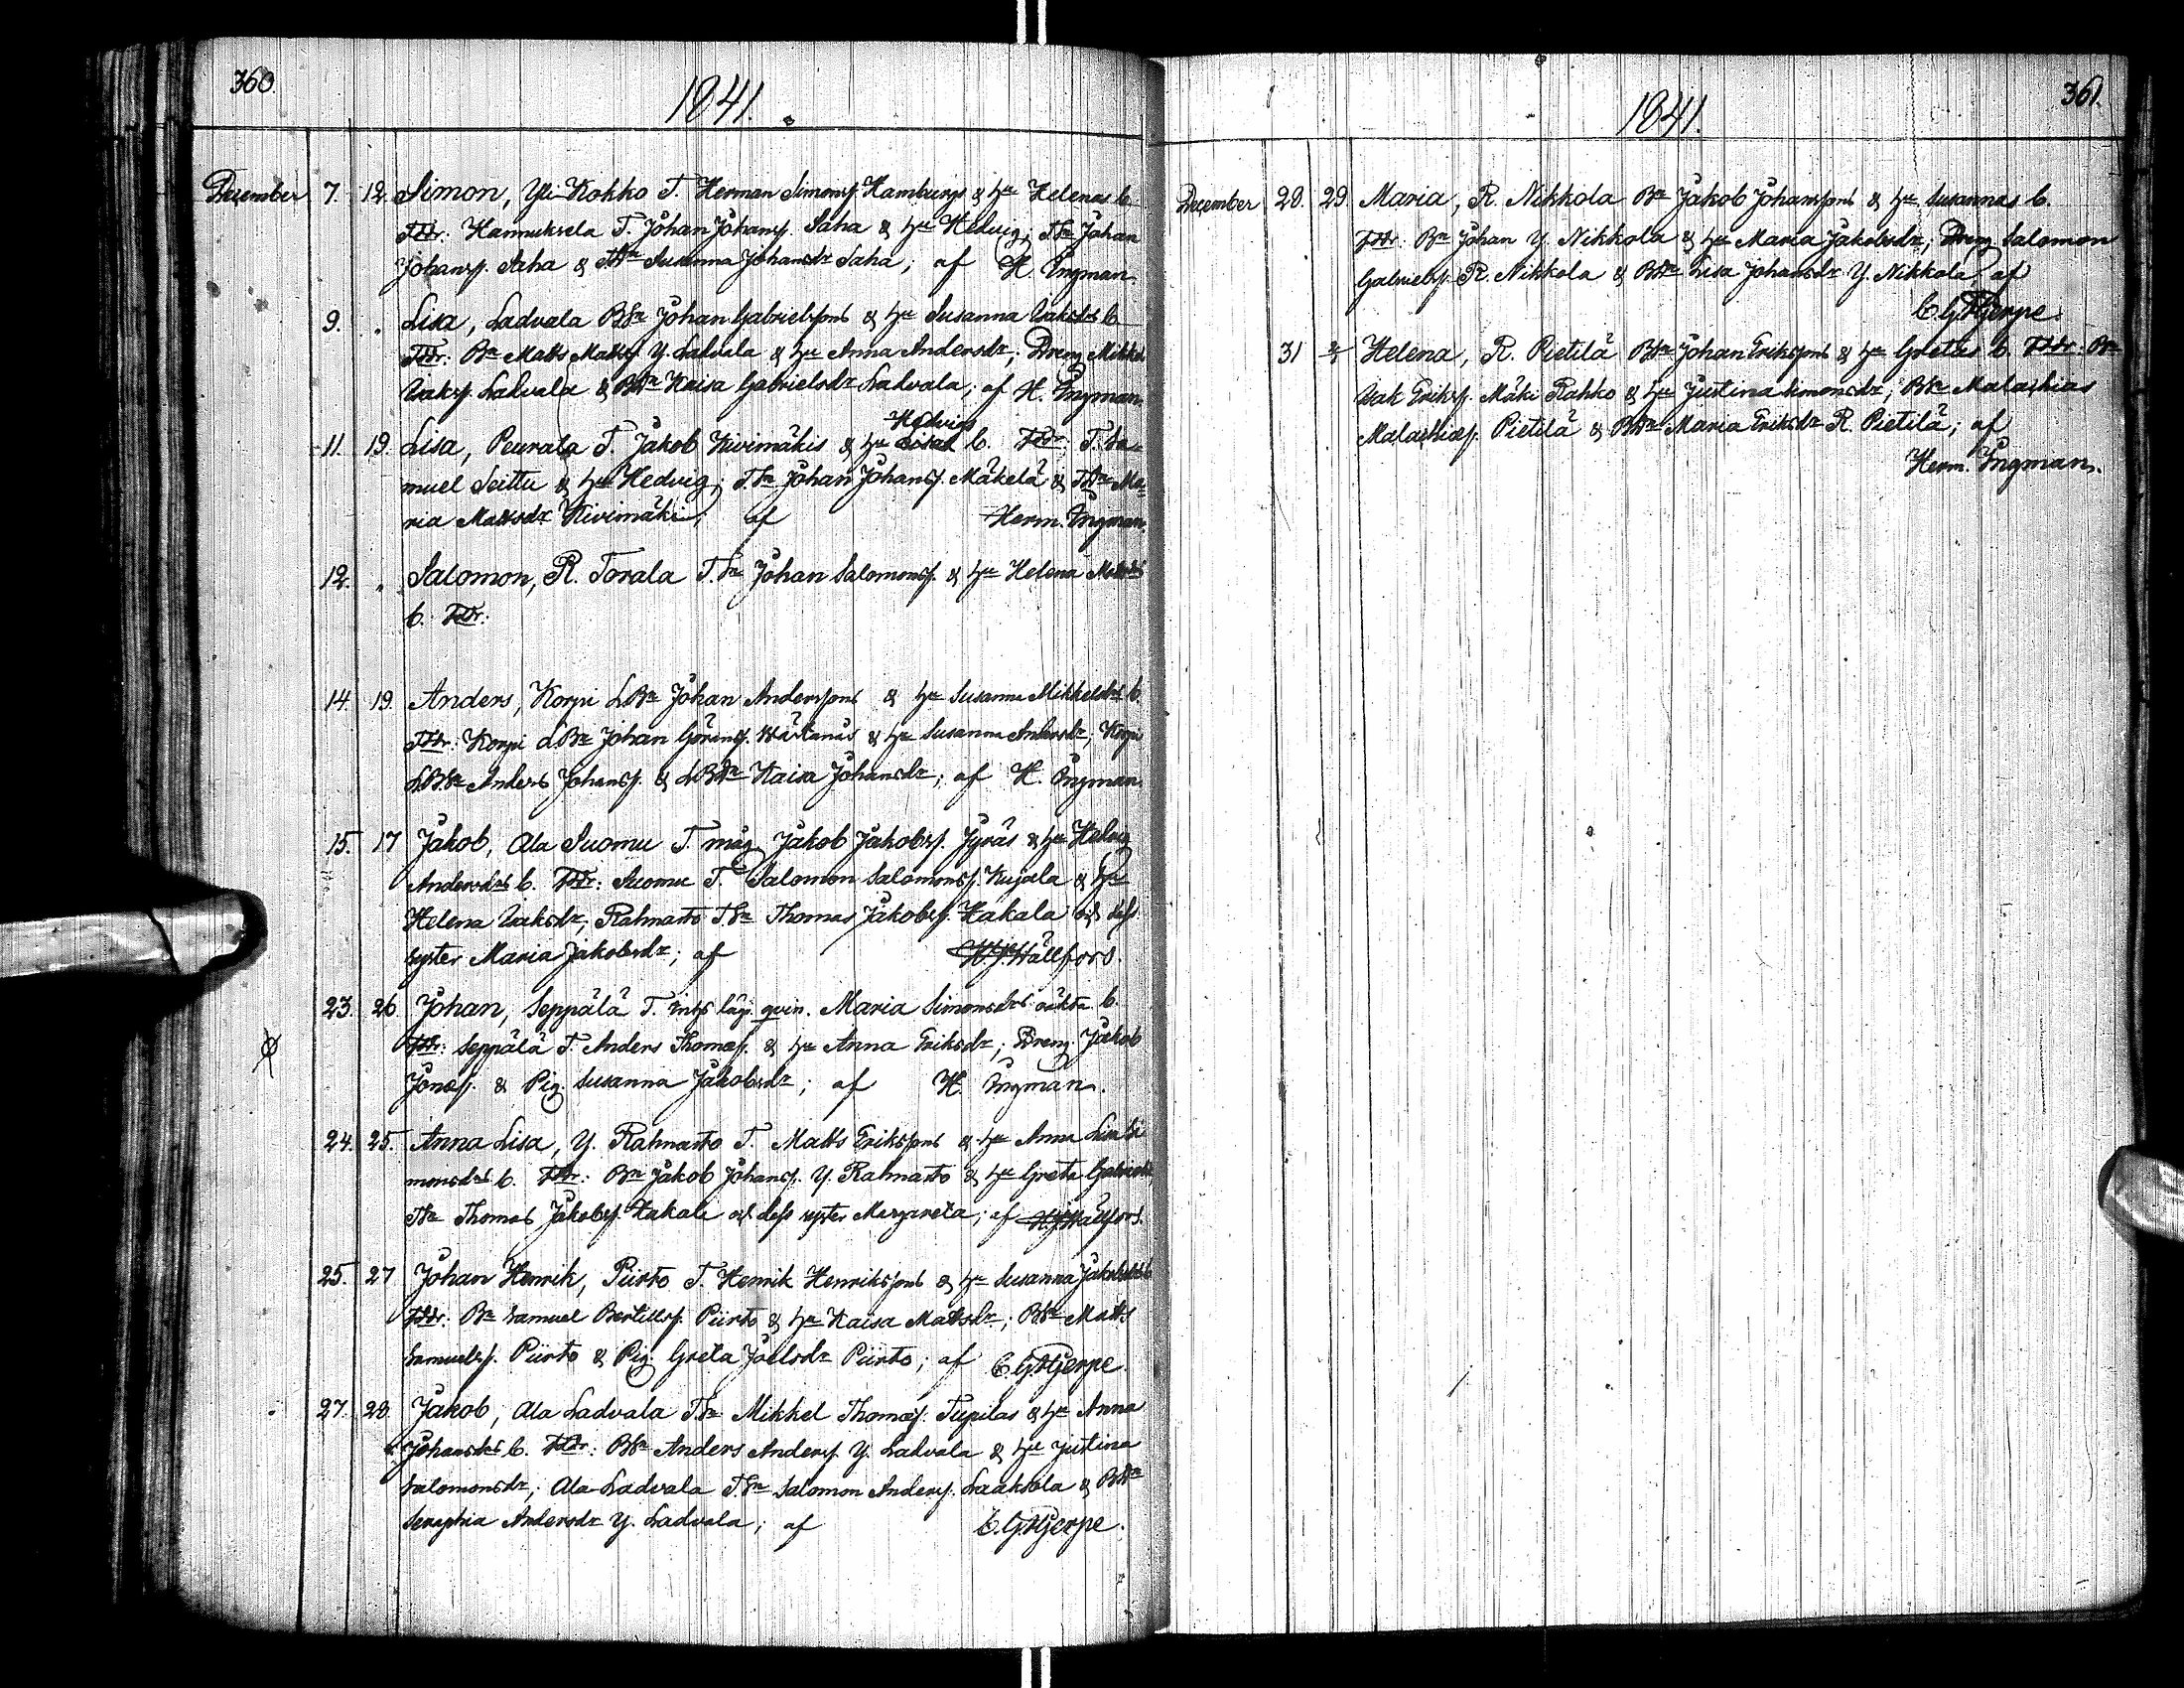 360.
1841.
December 7. 12. Simon, Yli-Kokko T. Herman Simonss. Hamburgs & hu Helenas b.
Fddr: Hannuksela T. Johan Johanss. Saha & hu Hedvig; T.Sn Johan
Johanss. Saha & TDr Susanna Johansdr Saha; af H. Ingman.
9. " Lisa, Ladvala BSn Johan Gabrielssons & hu Susanna Isaksdrs b.
Fddr: Bn Matts Mattss. Y. Ladvala & hu Anna Andersdr; Dreng Mikkel
Isakss. Ladvala & BDr Kaisa Gabrielsdr Ladvala; af H. Ingman.
Hedvigs
11. 19. Lisa, Peurala T. Jakob Kivimäkis & hu Lisas b. Fddr: T. Sa-
muel Seittu & hu Hedvig; T.Sn Johan Johanss. Mäkelä & TDr Ma-
ria Mattsdr Kivimäki; af Herm. Ingman.
12. " Salomon, R. Torala T.Sn Johan Salomonss. & hu Helena Mattsdrs
b. Fddr:
14. 19. Anders, Korpi LBn Johan Anderssons & hu Susanna Mikkelsdrs b.
Fddr: Korpi LBn Johan Göranss. & hu Susanna Andersdr; Korpi
LBSn Anders Johanss. & LBDr Kaisa Johansdr; af H. Ingman.
15. 17 Jakob, Ala Suomu T. måg Jakob Jakobss. Jyräs & hu Hedvig
Andersdrs b. Fddr: Suomu T. Salomon Salomonss. Kujala & hu
Helena Isaksdr; Rahnasto T.Sn Thomas Jakobss. Hakala och dess
syster Maria Jakobsdr; af H.J. Hällfors.
23. 26 Johan, Seppälä T. Inhs läg. qvin. Maria Simonsdrs oäkta b.
Fddr: Seppälä T. Anders Thomass. & hu Anna Eriksdr; Dreng Jakob
Jonass. & Pig. Susanna Jakobsdr; af H. Ingman.
24. 25. Anna Lisa, Y. Rahnasto T. Matts Erikssons & hu Anna Lisa Si
monsdrs b. Fddr: Bn Jakob Johanss. Y. Rahnasto & hu Greta Gabrielsdr;
TSn Thomas Jakobss. Hakala och dess syster Margareta; af H.J. Hällfors.
25. 27 Johan Henrik, Piirto T. Henrik Henrikssons & hu Susanna Jakobsdrs b.
Fddr: Bn Samuel Bertillss. Piirto & hu Kaisa Mattsdr; BSn Matts
Samuelss. Piirto & Pig. Greta Joelsdr Piirto; af C.G. Hjerpe.
27. 28. Jakob, Ala Ladvala T.Sn Mikkel Thomass. Tupilas & hu Anna
Johansdrs b. Fddr: BSn Anders Anderss. Y. Ladvala & hu Justina
Salomonsdr; Ala-Ladvala T.Sn Salomon Anderss. Laaksola & BDr
Seraphia Andersdr Y. Ladvala; af C.G. Hjerpe.
361.
1841.
December 28. 29. Maria, R. Nikkola Bn Jakob Johanssons & hu Susannas b.
Fddr: Bn Johan Y. Nikkola & hu Maria Jakobsdr; Dreng Salomon
Gabrielss. R. Nikkola & BDr Lisa Johansdr Y. Nikkola; af
C.G. Hjerpe.
31 Helena, R. Pietilä BSn Johan Erikssons & hu Gretas b. Fddr: Bn
Isak Erikss. Mäki Rahko & hu Justina Simonsdr; BSn Malachias
Malachiass. Pietilä & BDr Maria Eriksdr R. Pietilä; af
Herm. Ingman.